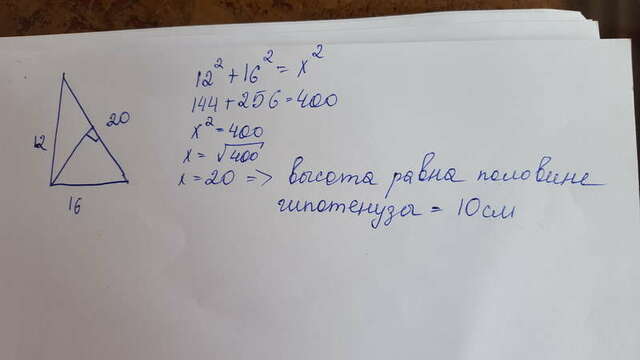 12² + 16² = x²
144 + 256 = 400
x² = 400
x = √400
x = 20 => высота равна половине
гипотенузы = 10см
12
20
16